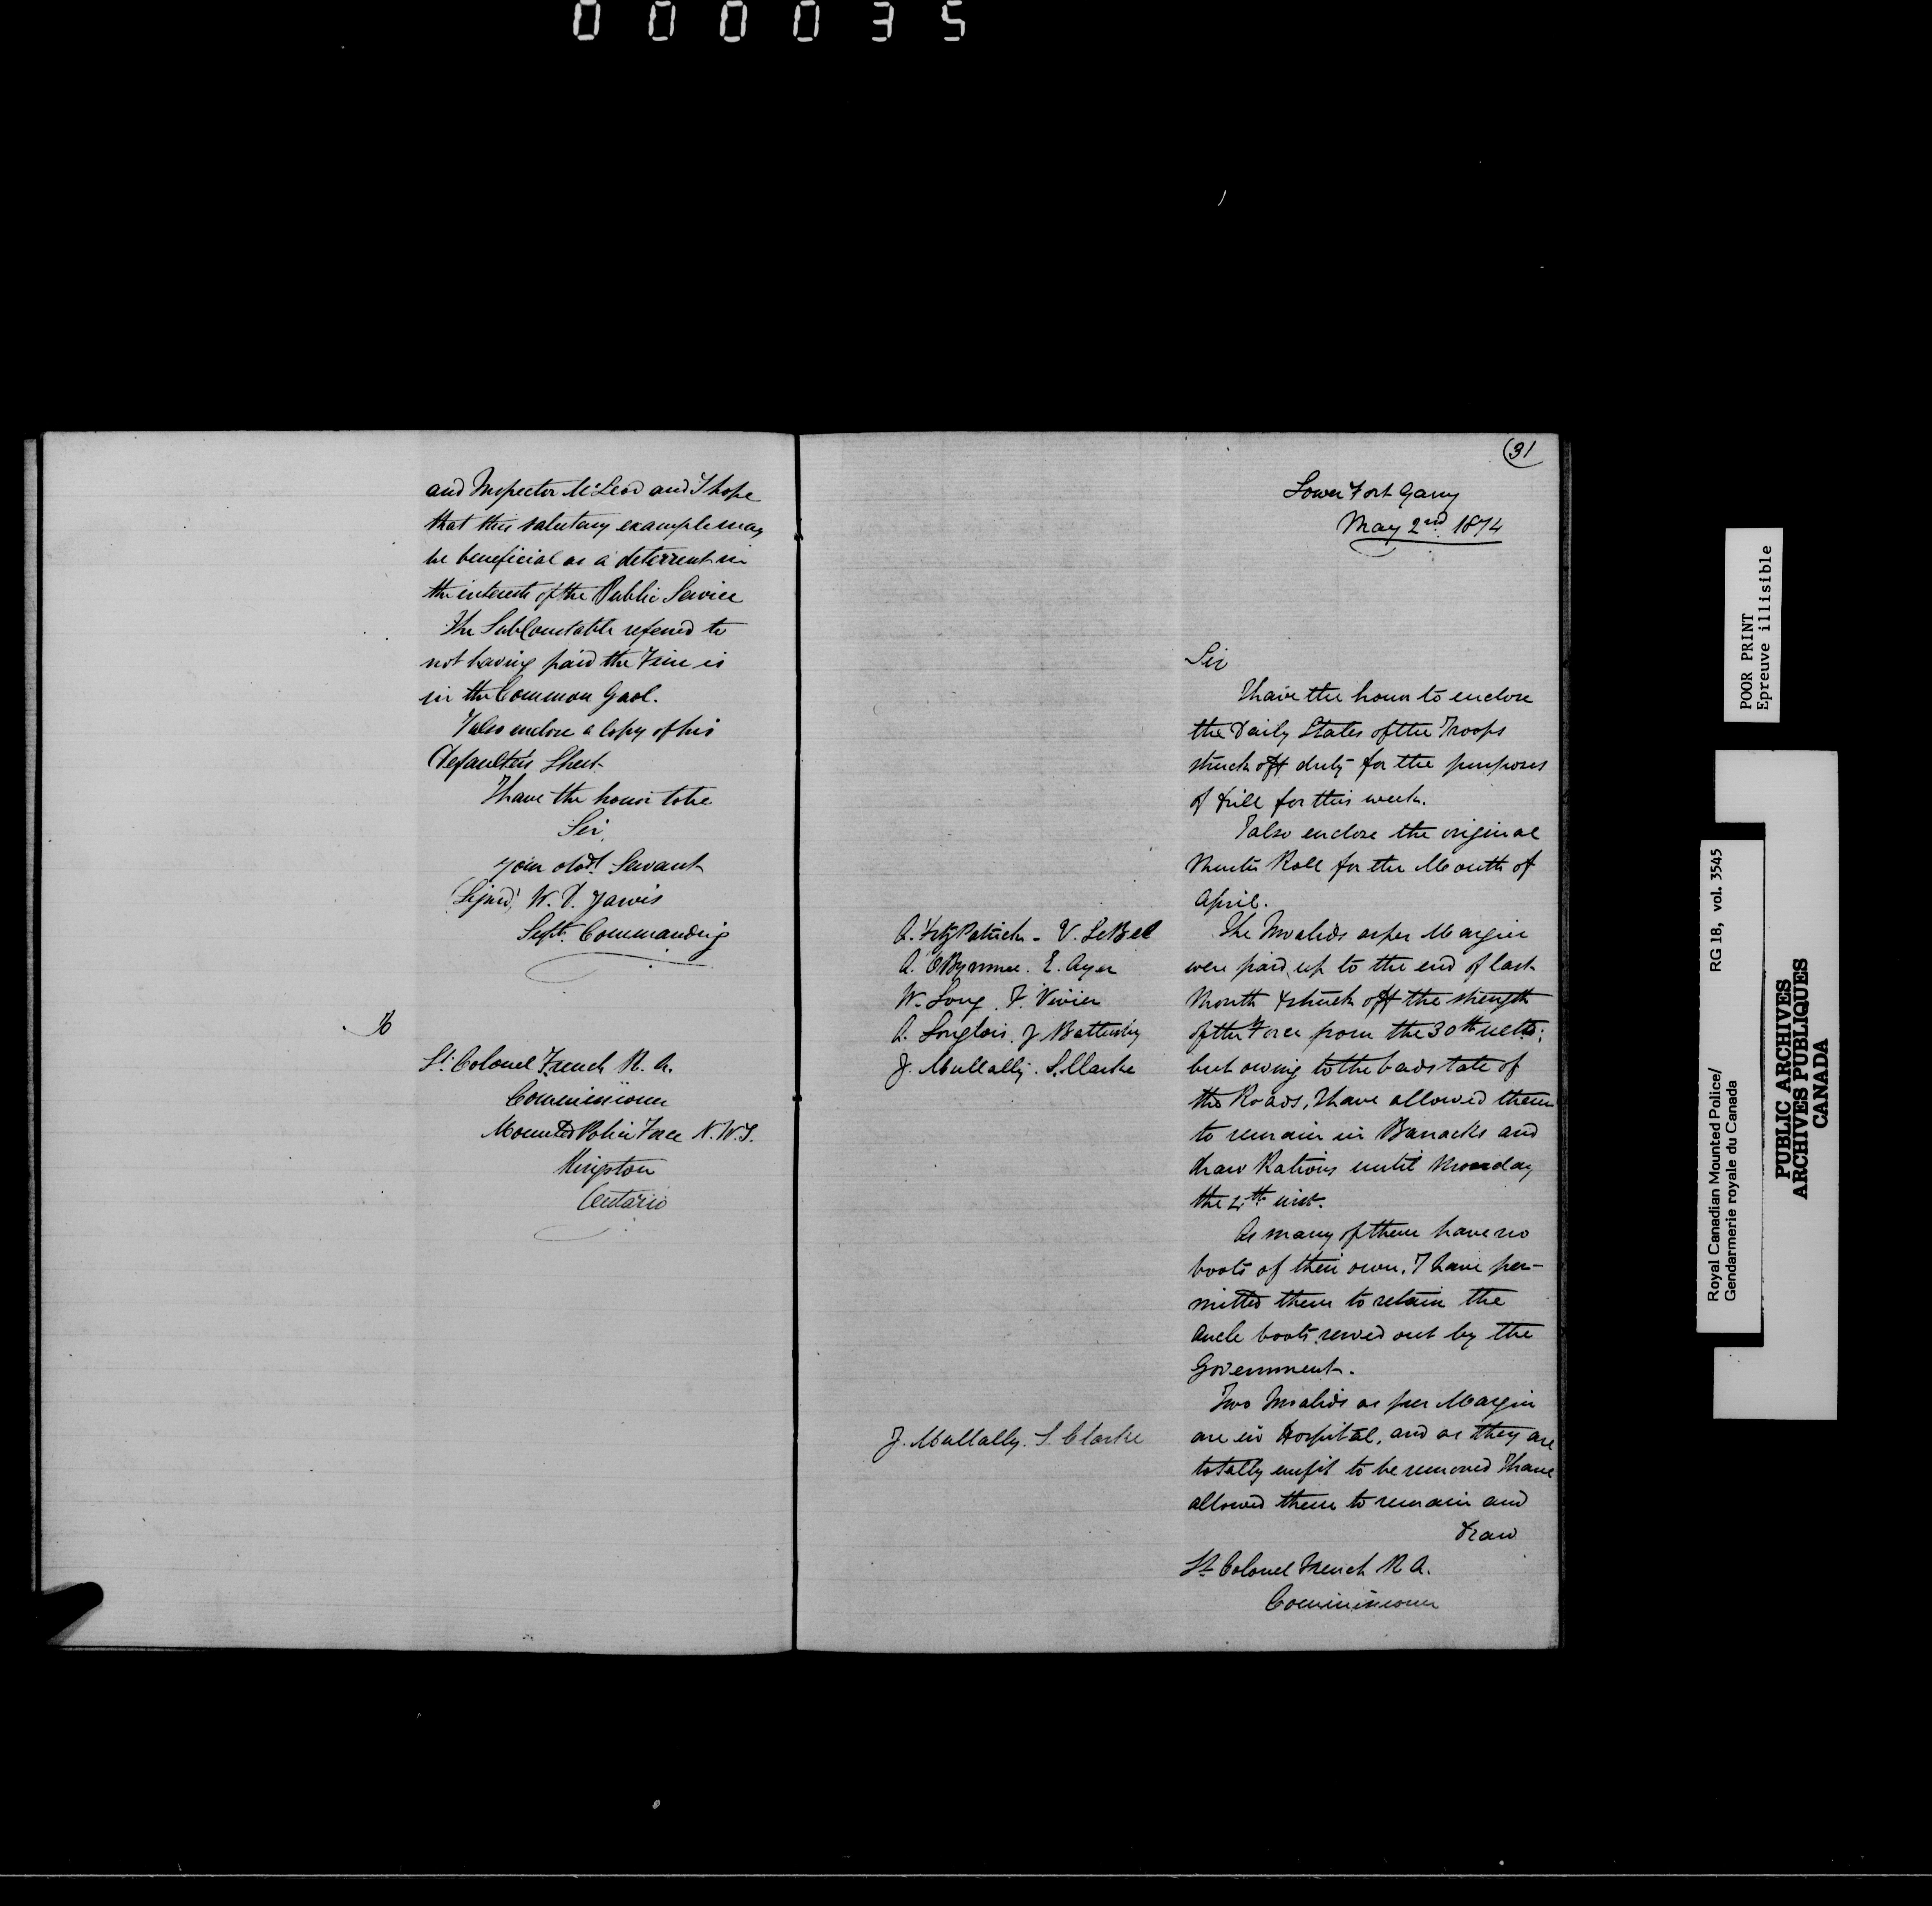 000035
and Inspector McLeod and I hope
that this salutary example may
be beneficial as a deterrent in
the interests of the Public Service
The Sub Constable referred to
not having paid the Fine is
in the Common Gaol.
I also enclose a Copy of his
Defaulters Sheet
I have the honor to be
Sir
your obdt Servant
(Signed) W. D. Jarvis
Supt. Commanding
Lt. Colonel French R. A.
Commissioner
Mounted Police Force N.W.T.
Kingston
Ontario
31
Lower Fort Garry
May 2nd 1874
Sir
I have the honor to enclose
the Daily States of the Troops
struck off duty for the purposes
of drill for this week.
I also enclose the original
Muster Roll for the Month of
April.
The Invalids as per Margin
were paid up to the end of last
Month & struck off the strength
of the Force from the 30th ulto;
but owing to the bad state of
the Roads, I have allowed them
to remain in Barracks and
draw Rations until Monday
the 4th inst.
As many of them have no
boots of their own, I have per-
mitted them to retain the
ancle boots served out by the
Government.
Two Invalids as per Margin
are in Hospital, and as they are
totally unfit to be removed I have
allowed them to remain and
draw
Lt Colonel French R A.
Commissioner
A. FitzPatrick - V. LeBel
A. OBynnne. E. Ayer
W. Long. F. Vivier
A. Longlois. J Battersby
J. Mullally. S. Clarke
J. Mullally. S. Clarke
POOR PRINT
Epreuve illisible
Royal Canadian Mounted Police/ RG 18, vol. 3545
Gendarmerie royale du Canada
PUBLIC ARCHIVES
ARCHIVES PUBLIQUES
CANADA